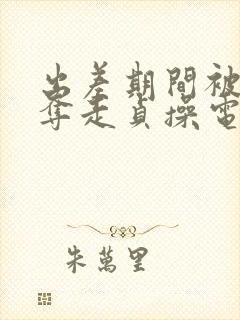 出差期間被
奪走貞操電
朱萬里